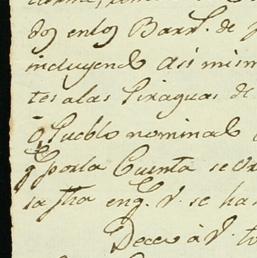 dos en los Barr.s de
incluyendo asi mism
tes a las Piraguas de
ó Pueblo nominal
q.e por la Cuenta se
en q.e V. se ha
Deceo à V.